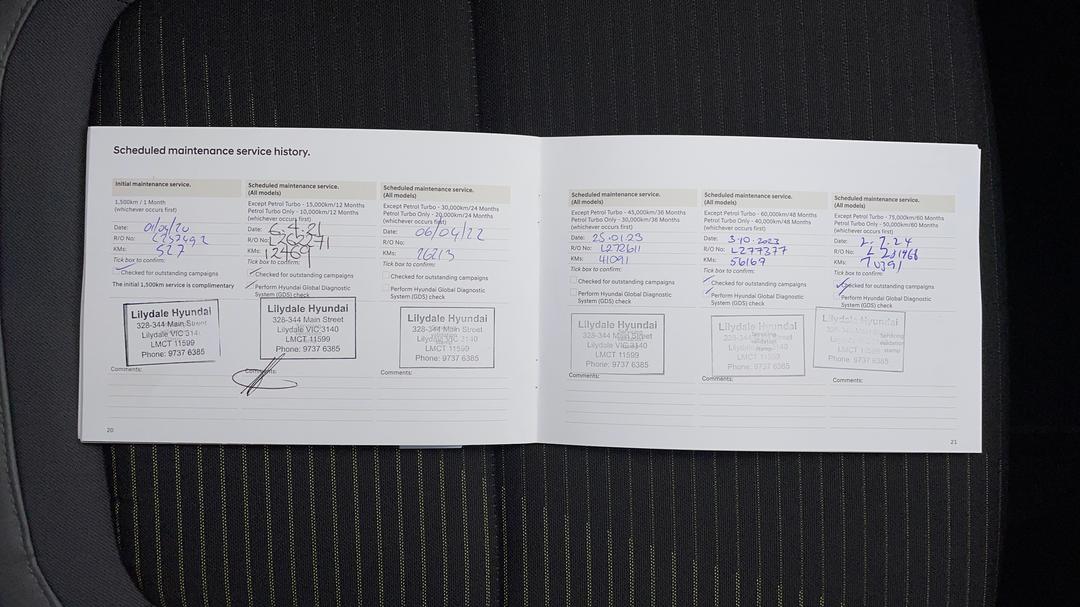 Scheduled maintenance service history.
Initial maintenance service.
1,500km / 1 Month
(whichever occurs first)
Date: 01/09/20
R/O No:
KMs: 527
Tick box to confirm:
Checked for outstanding campaigns
The initial 1,500km service is complimentary
Lilydale Hyundai
328-344 Main Street
Lilydale VIC 314
LMCT 11599
Phone: 9737 6385
Comments:
Scheduled maintenance service.
(All models)
Except Petrol Turbo - 15,000km/12 Months
Petrol Turbo Only - 10,000km/12 Months
(whichever occurs first)
Date: 6.4.21
R/O No: L263271
KMs: 12469
Tick box to confirm:
Checked for outstanding campaigns
Perform Hyundai Global Diagnostic
System (GDS) check
Lilydale Hyundai
328-344 Main Street
Lilydale VIC 3140
LMCT 11599
Phone: 9737 6385
Comments:
Scheduled maintenance service.
(All models)
Except Petrol Turbo - 30,000km/24 Months
Petrol Turbo Only - 20,000km/24 Months
(whichever occurs first)
Date: 06/04/22
R/O No:
KMs: 26213
Tick box to confirm:
Checked for outstanding campaigns
Perform Hyundai Global Diagnostic
System (GDS) check
Lilydale Hyundai
328-344 Main Street
Lilydale VIC 3140
LMCT 11599
Phone: 9737 6385
Comments:
20
Scheduled maintenance service.
(All models)
Except Petrol Turbo - 45,000km/36 Months
Petrol Turbo Only - 30,000km/36 Months
(whichever occurs first)
Date: 25.01.23
R/O No: L272611
KMs: 41091
Tick box to confirm:
Checked for outstanding campaigns
Perform Hyundai Global Diagnostic
System (GDS) check
Lilydale Hyundai
328-344 Main Street
Lilydale VIC 3140
LMCT 11599
Phone: 9737 6385
Comments:
Scheduled maintenance service.
(All models)
Except Petrol Turbo - 60,000km/48 Months
Petrol Turbo Only - 40,000km/48 Months
(whichever occurs first)
Date: 3.10.2023
R/O No: L277377
KMs: 56169
Tick box to confirm:
Checked for outstanding campaigns
Perform Hyundai Global Diagnostic
System (GDS) check
Lilydale Hyundai
328-344 Main Street
LMCT 11599
Phone: 9737 6385
Comments:
Scheduled maintenance service.
(All models)
Except Petrol Turbo - 75,000km/60 Months
Petrol Turbo Only - 50,000km/60 Months
(whichever occurs first)
Date: 2.7.24
R/O No:
KMs: 70391
Tick box to confirm:
Checked for outstanding campaigns
Perform Hyundai Global Diagnostic
System (GDS) check
LMCT 11599
Phone: 9737 6385
Comments:
21